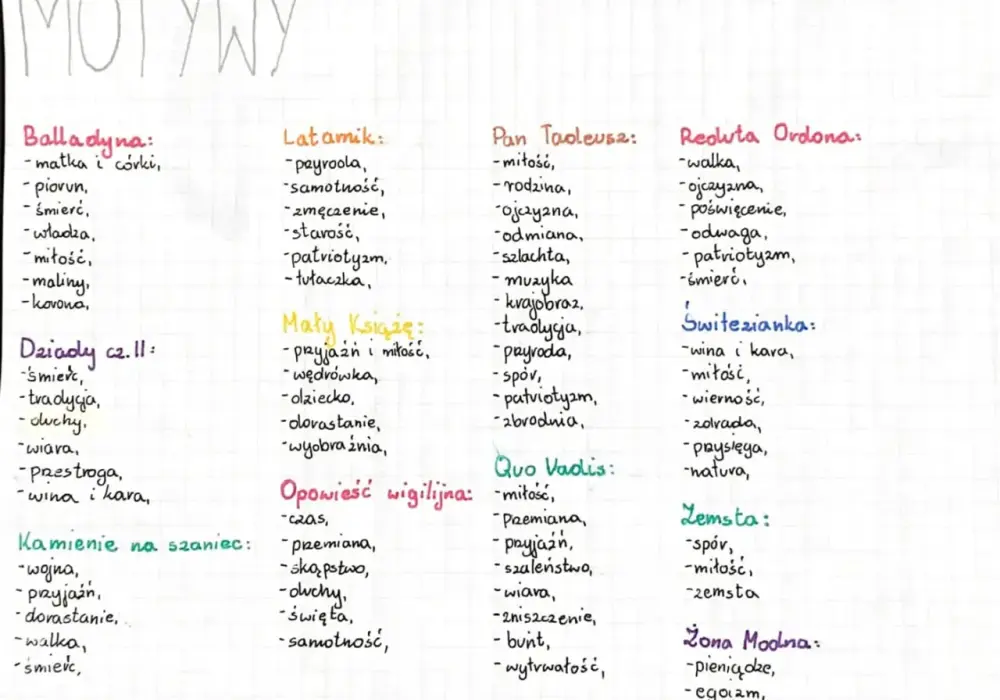 MOTYWY
Balladyna:
-matka i córki,
-piorun,
-śmierć,
-władza,
-miłość,
-maliny,
-korona,
Dziady cz.II:
-śmierć,
-tradycja,
-duchy,
-wiara,
-przestroga,
-wina i kara,
Kamienie na szaniec:
-wojna,
-przyjaźń,
-dorastanie,
-walka,
-śmierć,
Latarnik:
-przyroda,
-samotność,
-zmęczenie,
-starość,
-patriotyzm,
-tułaczka,
Mały Książę:
-przyjaźń i miłość,
-wędrówka,
-dziecko,
-dorastanie,
-wyobraźnia,
Opowieść wigilijna:
-czas,
-przemiana,
-skąpstwo,
-duchy,
-święta,
-samotność,
Pan Tadeusz:
-miłość,
-rodzina,
-ojczyzna,
-odmiana,
-szlachta,
-muzyka
-krajobraz,
-tradycja,
-przyroda,
-spór,
-patriotyzm,
-zbrodnia,
Quo Vadis:
-miłość,
-przemiana,
-przyjaźń,
-szaleństwo,
-wiara,
-zniszczenie,
-bunt,
-wytrwałość,
Reduta Ordona:
-walka,
-ojczyzna,
-poświęcenie,
-odwaga,
-patriotyzm,
-śmierć,
Świtezianka:
-wina i kara,
-miłość,
-wierność,
-zdrada,
-przysięga,
-natura,
Zemsta:
-spór,
-miłość,
-zemsta
Żona Modna:
-pieniądze,
-egoizm,